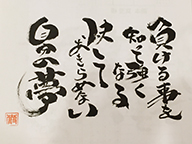 負ける事を
知って強く
なる
決して
あきらめない
自分の夢